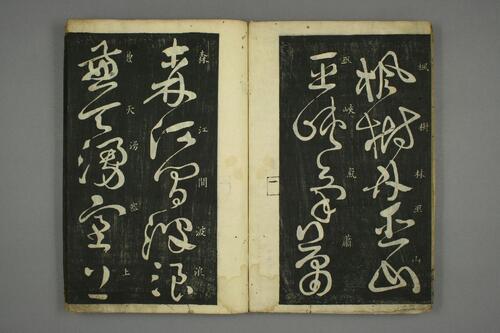 楓樹林巫山
楓樹林巫山
巫峽氣蕭
巫峽氣蕭
森江間波浪
森江間波浪
兼天湧塞上
兼天湧塞上
一